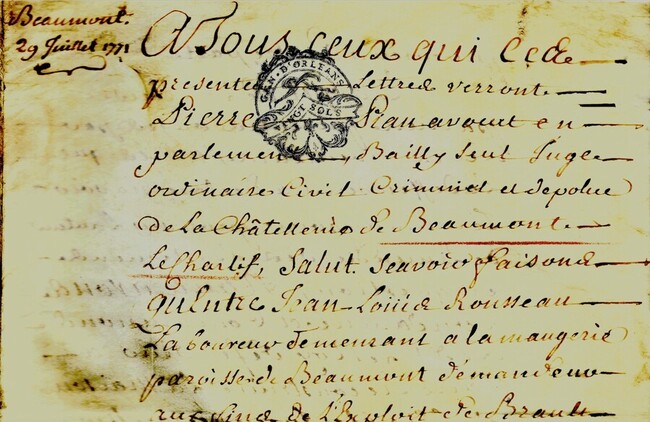 Beaumont.
29 Juillet 1771
A Tous ceux qui ces
presentes Lettres verront
Pierre Jean avocat en
parlement, Bailly seul Juge
ordinaire Civil Criminel et de police
de La Châtellenie de Beaumont
Le Chartif, Salut. Scavoir faisons
qu'Entre Jean Louis Rousseau
Laboureur demeurant a la maugerie
paroisse de Beaumont demandeur
de L'Exploit de Brault
GEN. D'ORLEANS
VINGT SOLS